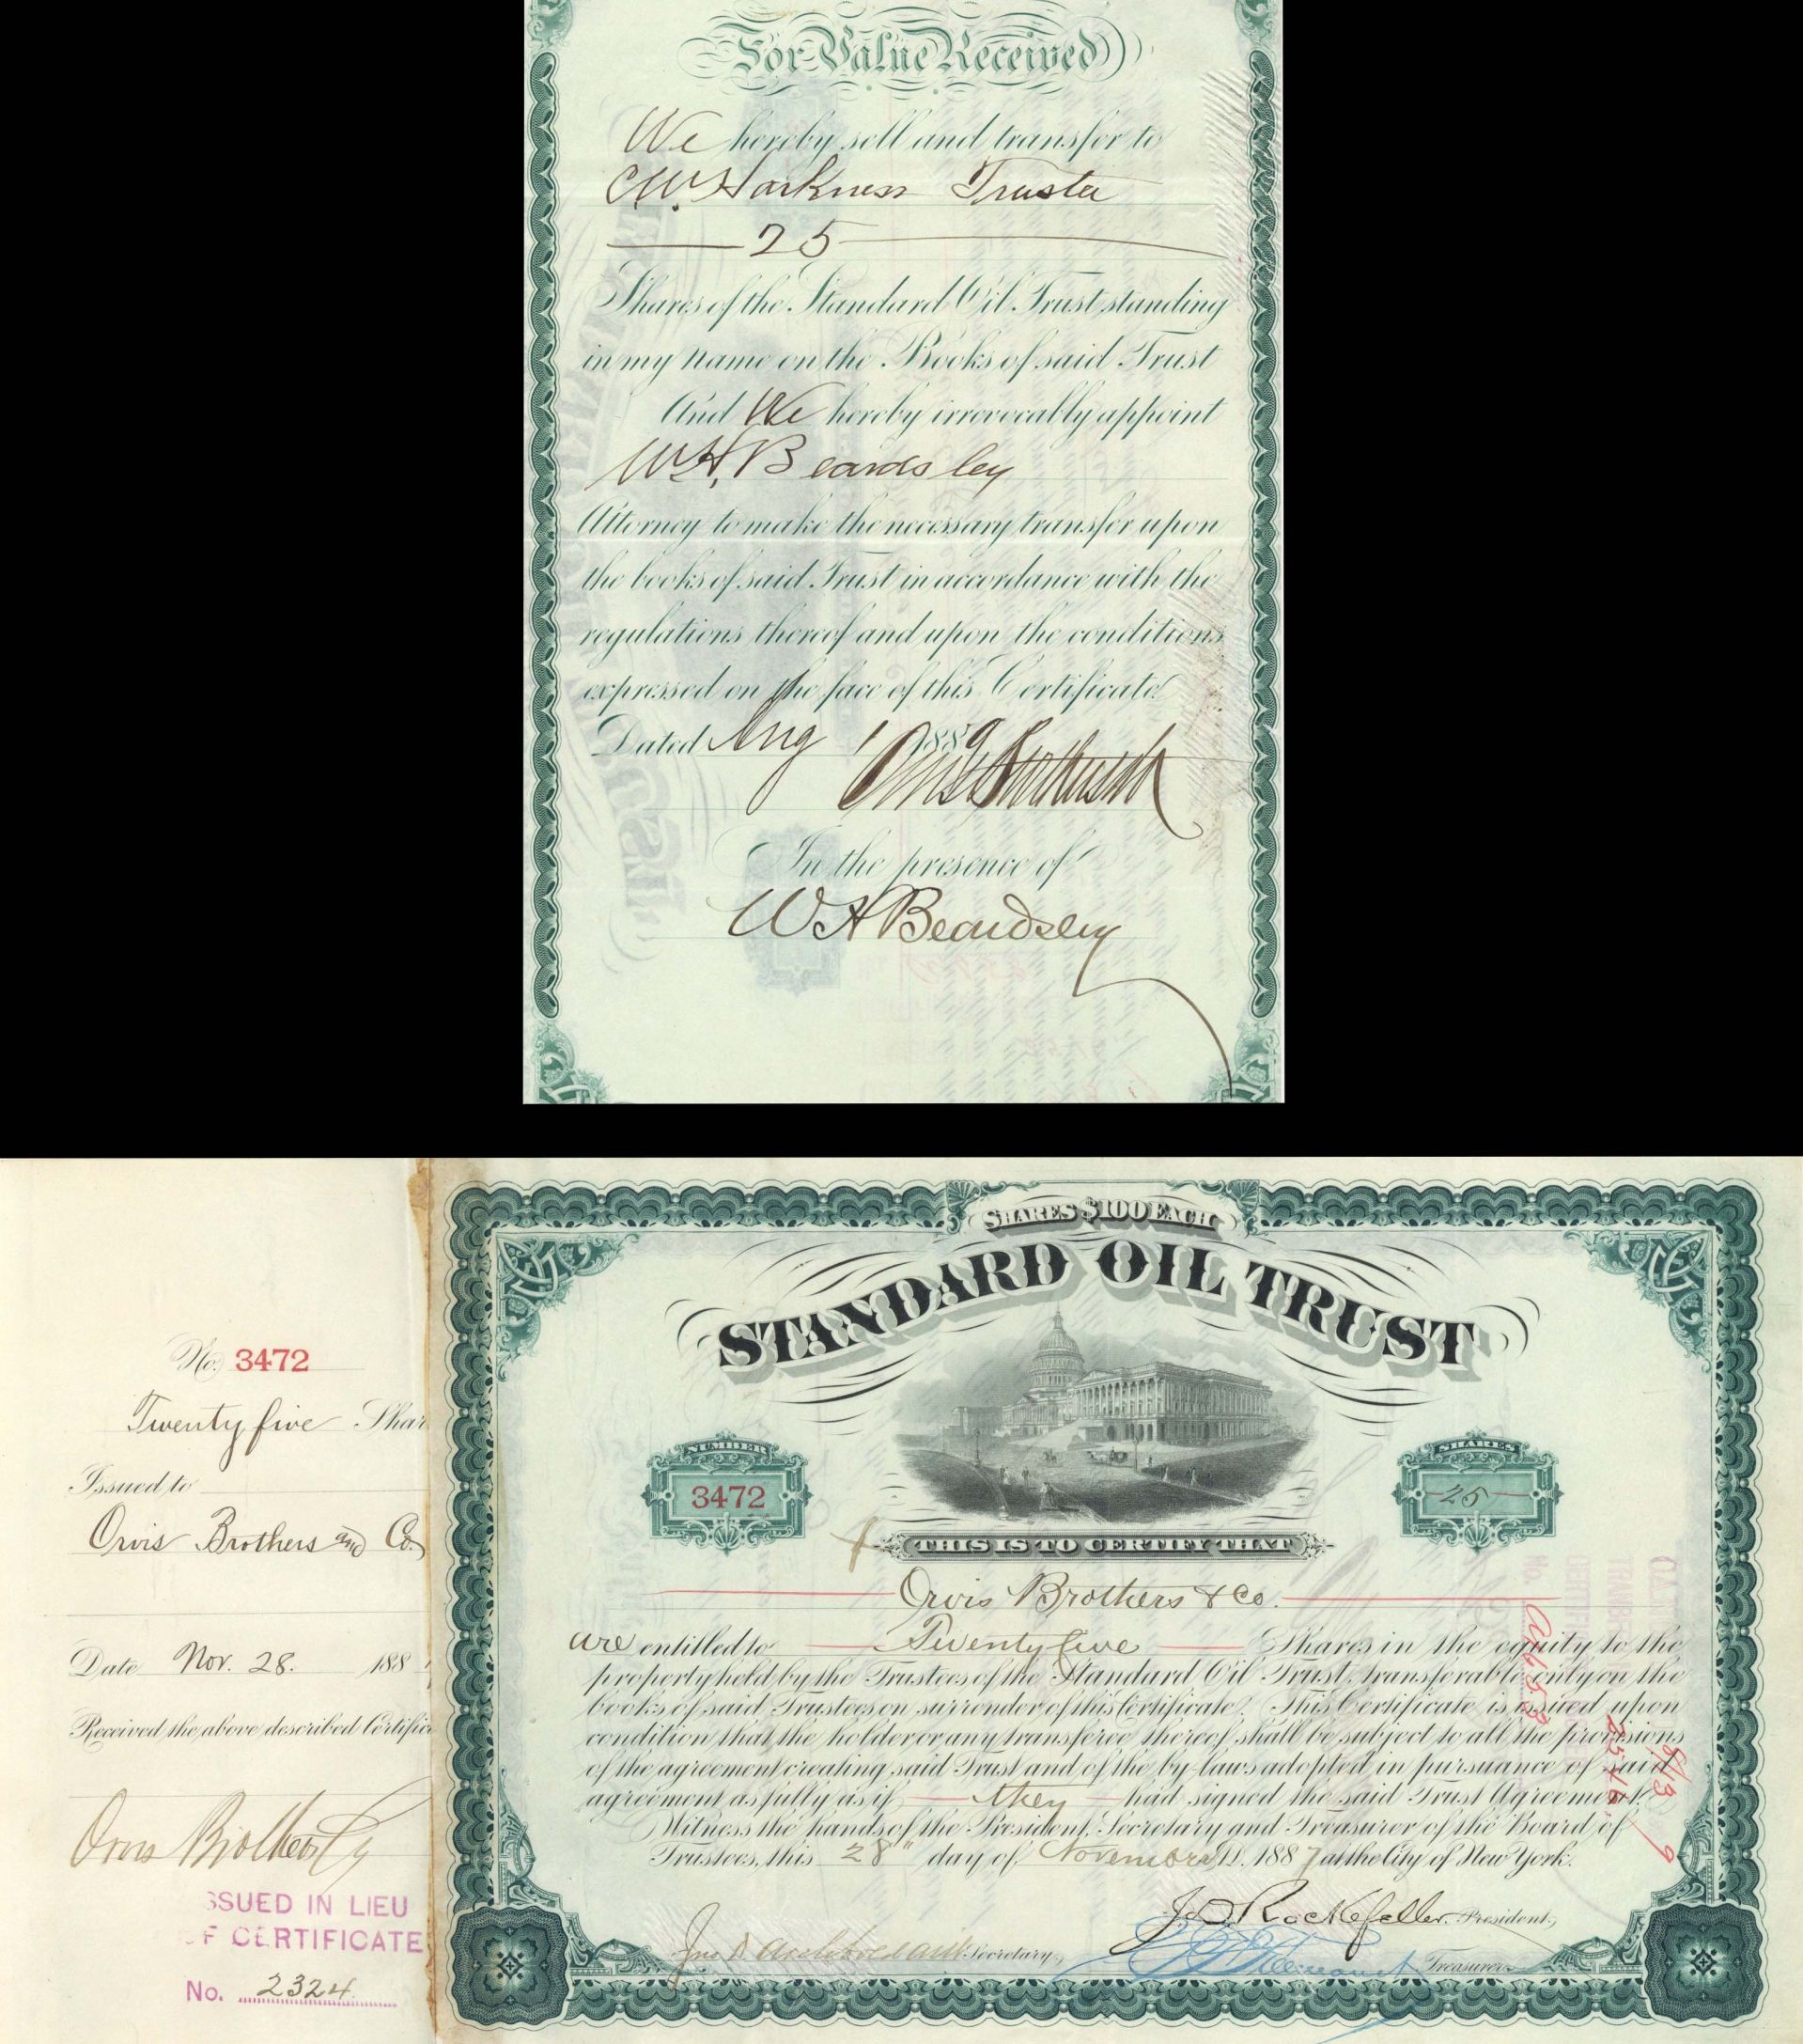 For Value Received
We hereby sell and transfer to
C.W. Harkness Trustee
25
Shares of the Standard Oil Trust standing
in my name on the Books of said Trust
And We hereby irrevocably appoint
W.H. Beardsley
Attorney to make the necessary transfer upon
the books of said Trust in accordance with the
regulations thereof and upon the conditions
expressed on the face of this Certificate
Dated Aug 1 1889
In the presence of
W H Beardsley
No. 3472
Twenty five Shar
Issued to
Orvis Brothers and Co.
Date Nov. 28. 188
Received the above described Certific
Orvis Brothers Co
ISSUED IN LIEU
OF CERTIFICATE
No. 2324
SHARES $100 EACH
STANDARD OIL TRUST
NUMBER
3472
SHARES
25
THIS IS TO CERTIFY THAT
Orvis Brothers & Co.
are entitled to Twenty five Shares in the equity to the
property held by the Trustees of the Standard Oil Trust, transferable only on the
books of said Trustees on surrender of this Certificate. This Certificate is issued upon
condition that the holder or any transferee thereof shall be subject to all the provisions
of the agreement creating said Trust and of the by-laws adopted in pursuance of said
agreement as fully as if they had signed the said Trust Agreement.
Witness the hands of the President, Secretary and Treasurer of the Board of
Trustees, this 28" day of November A.D. 1887 at the City of New York.
J.D. Rockefeller President,
Jno D Archbold Secretary,
Treasurer